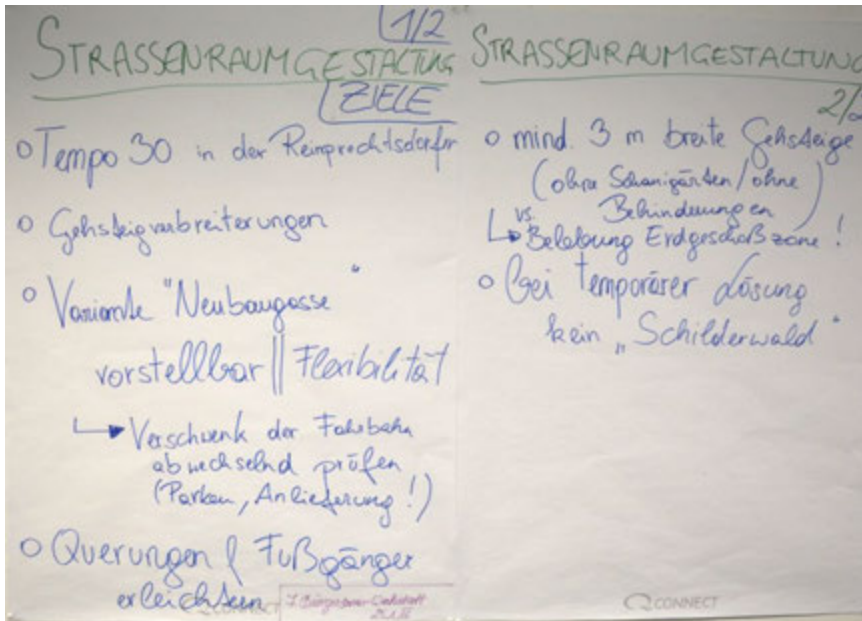 1/2
STRASSENRAUMGESTALTUNG
ZIELE
o Tempo 30 in der Reinprechtsdorfer
o Gehsteigverbreiterungen
o Variante "Neubaugasse"
vorstellbar || Flexibilität
↳ Verschwenk der Fahrbahn
abwechselnd prüfen
(Parken, Anlieferung!)
o Querungen f Fußgänger
erleichtern
CONNECT
STRASSENRAUMGESTALTUNG
2/2
o mind. 3 m breite Gehsteige
(ohne Schanigärten/ohne
Behinderungen)
vs.
↳ Belebung Erdgeschoßzone!
o bei temporärer Lösung
kein „Schilderwald"
CONNECT